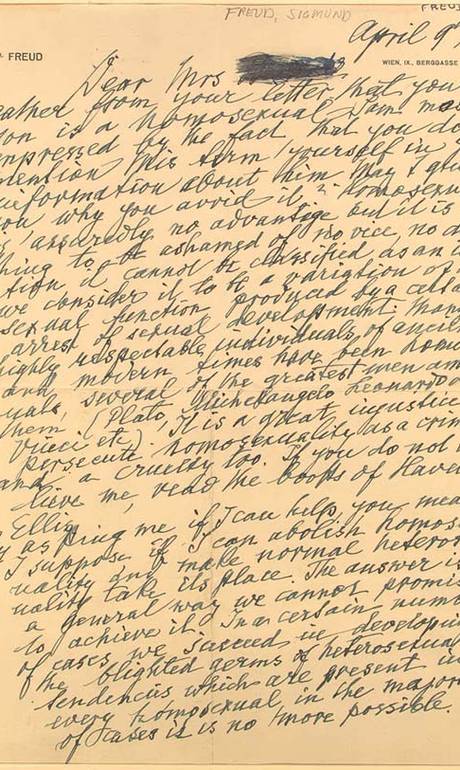 FREUD, SIGMUND
FREUD
April 9th
FREUD
WIEN, IX., BERGGASSE
Dear Mrs
gather from your letter that you
son is a homosexual. I am mo
impressed by the fact that you do
mention this term yourself in
information about him. May I
you why you avoid it? Homosexu
assuredly no advantage but it is
thing to be ashamed of, no vice, no de
tion, it cannot be classified as an i
we consider it to be a variation of
sexual function produced by a certa
arrest of sexual development. Many
highly respectable individuals of ancient
and modern times have been homo
uals, several of the greatest men am
them (Plato, Michelangelo, Leonardo
Vinci etc). It is a great injustice
persecute homosexuality as a crim
and a cruelty too. If you do not
lieve me, read the books of Havel
Ellis.
y asking me if I can help, you mea
I suppose, if I can abolish homos
uality and make normal heteros
uality take its place. The answer is
a general way we cannot promis
to achieve it. In a certain num
of cases we succeed in developin
the blighted germs of heterosexual
tendencies which are present in
every homosexual in the major
of cases it is no more possible.